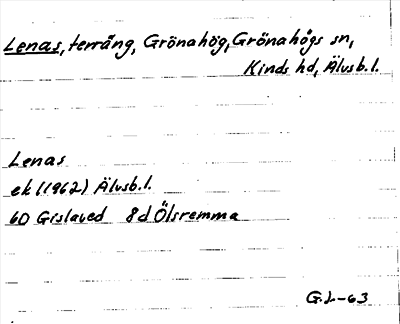 Lenas, terräng, Grönahög, Grönahögs sn,
Kinds hd, Älvsb.l.
Lenas
ek (1962) Älvsb.l.
6D Gislaved 8d Ölsremma
G.L-63